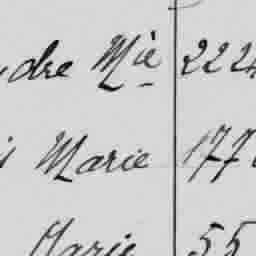 dre Mie 222
Marie 177
Marie 55